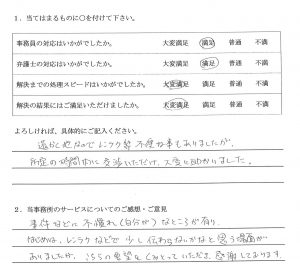 1．当てはまるものに○を付けて下さい。
事務員の対応はいかがでしたか。 大変満足 満足 普通 不満
弁護士の対応はいかがでしたか。 大変満足 満足 普通 不満
解決までの処理スピードはいかがでしたか。 大変満足 満足 普通 不満
解決の結果にはご満足いただけましたか。 大変満足 満足 普通 不満
よろしければ、具体的にご記入ください。
遠い他なので レンラク等 不便な事もありましたが、
の時間内に 大変に助かりました。
2．当事務所のサービスについてのご感想・ご意見
事件などに不慣れ(自分が)なところが有り、
はじめは、レンラクなどで 少し伝わらないかなと思う場面が
ありましたが、こちらの要望をくみとっていただき 感謝しております。